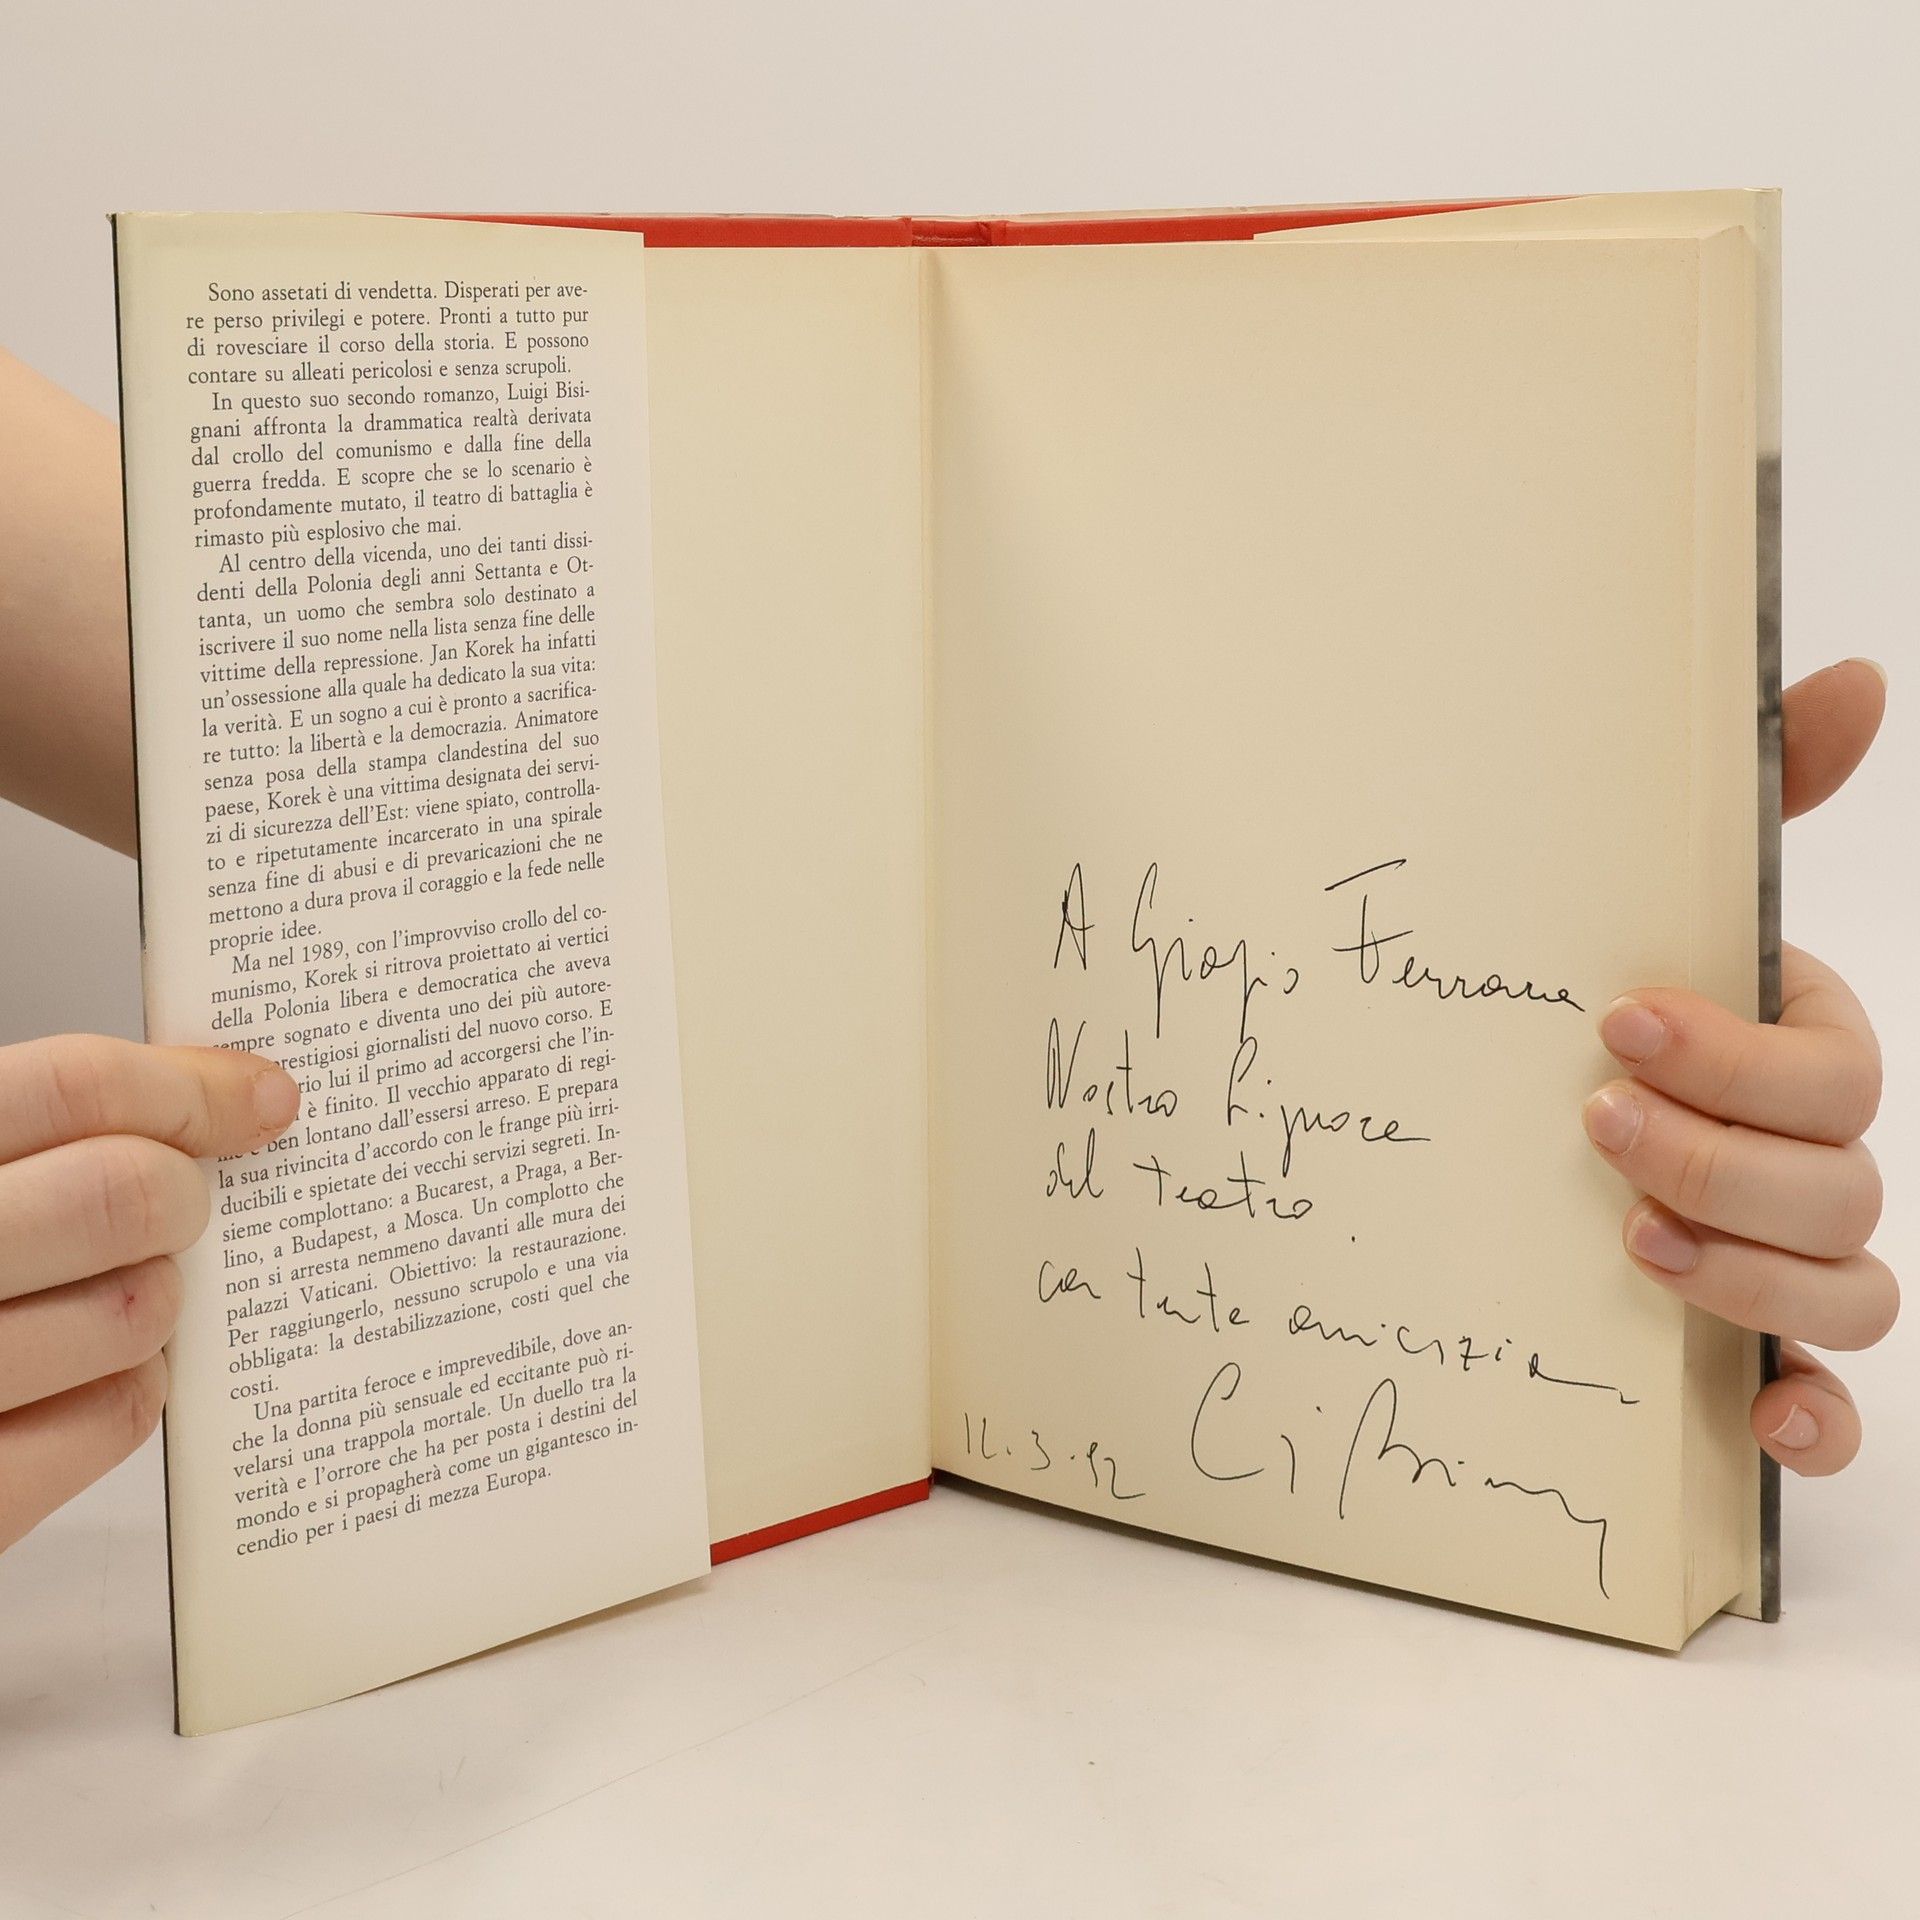 Sono assetati di vendetta. Disperati per ave-
re perso privilegi e potere. Pronti a tutto pur
di rovesciare il corso della storia. E possono
contare su alleati pericolosi e senza scrupoli.
In questo suo secondo romanzo, Luigi Bisi-
gnani affronta la drammatica realtà derivata
dal crollo del comunismo e dalla fine della
guerra fredda. E scopre che se lo scenario è
profondamente mutato, il teatro di battaglia è
rimasto più esplosivo che mai.
Al centro della vicenda, uno dei tanti dissi-
denti della Polonia degli anni Settanta e Ot-
tanta, un uomo che sembra solo destinato a
iscrivere il suo nome nella lista senza fine delle
vittime della repressione. Jan Korek ha infatti
un'ossessione alla quale ha dedicato la sua vita:
la verità. E un sogno a cui è pronto a sacrifica-
re tutto: la libertà e la democrazia. Animatore
senza posa della stampa clandestina del suo
paese, Korek è una vittima designata dei servi-
zi di sicurezza dell'Est: viene spiato, controlla-
to e ripetutamente incarcerato in una spirale
senza fine di abusi e di prevaricazioni che ne
mettono a dura prova il coraggio e la fede nelle
proprie idee.
Ma nel 1989, con l'improvviso crollo del co-
munismo, Korek si ritrova proiettato ai vertici
della Polonia libera e democratica che aveva
sempre sognato e diventa uno dei più autore-
prestigiosi giornalisti del nuovo corso. E
lui il primo ad accorgersi che l'in-
è finito. Il vecchio apparato di regi-
ben lontano dall'essersi arreso. E prepara
la sua rivincita d'accordo con le frange più irri-
ducibili e spietate dei vecchi servizi segreti. In-
sieme complottano: a Bucarest, a Praga, a Ber-
lino, a Budapest, a Mosca. Un complotto che
non si arresta nemmeno davanti alle mura dei
palazzi Vaticani. Obiettivo: la restaurazione.
Per raggiungerlo, nessuno scrupolo e una via
obbligata: la destabilizzazione, costi quel che
costi.
Una partita feroce e imprevedibile, dove an-
che la donna più sensuale ed eccitante può ri-
velarsi una trappola mortale. Un duello tra la
verità e l'orrore che ha per posta i destini del
mondo e si propagherà come un gigantesco in-
cendio per i paesi di mezza Europa.
A Giorgio Ferrara
Nostro Signore
del teatro.
con tante amicizia
12.3.92